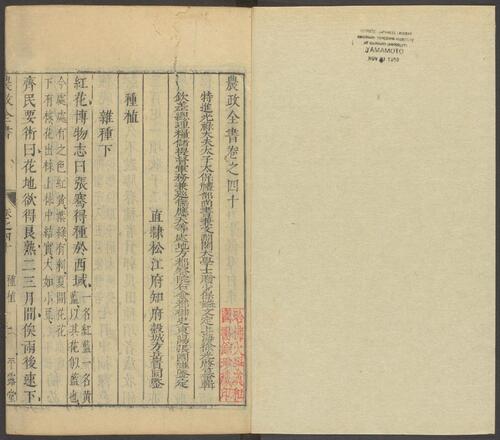 農政全書卷之四十
特進光祿大夫太子太保禮部尚書兼文淵閣大學士贈少保諡文定上海徐光啓纂輯
欽差總理糧儲提督軍務兼巡撫應天等處地方都察院右僉都御史東陽張國維鑒定
直隸松江府知府穀城方岳貢同鑒
種植
雜種下
紅花博物志曰張騫得種於西域一名紅藍一名黃藍以其花似藍也
今處處有之色紅黃葉綠有刺夏開花花
下有梂花出梂上梂中結實大如小豆
齊民要術曰花地欲得良熟二三月間俟雨後速下
農政全書
卷之四十
種植
平露堂
YAMAMOTO